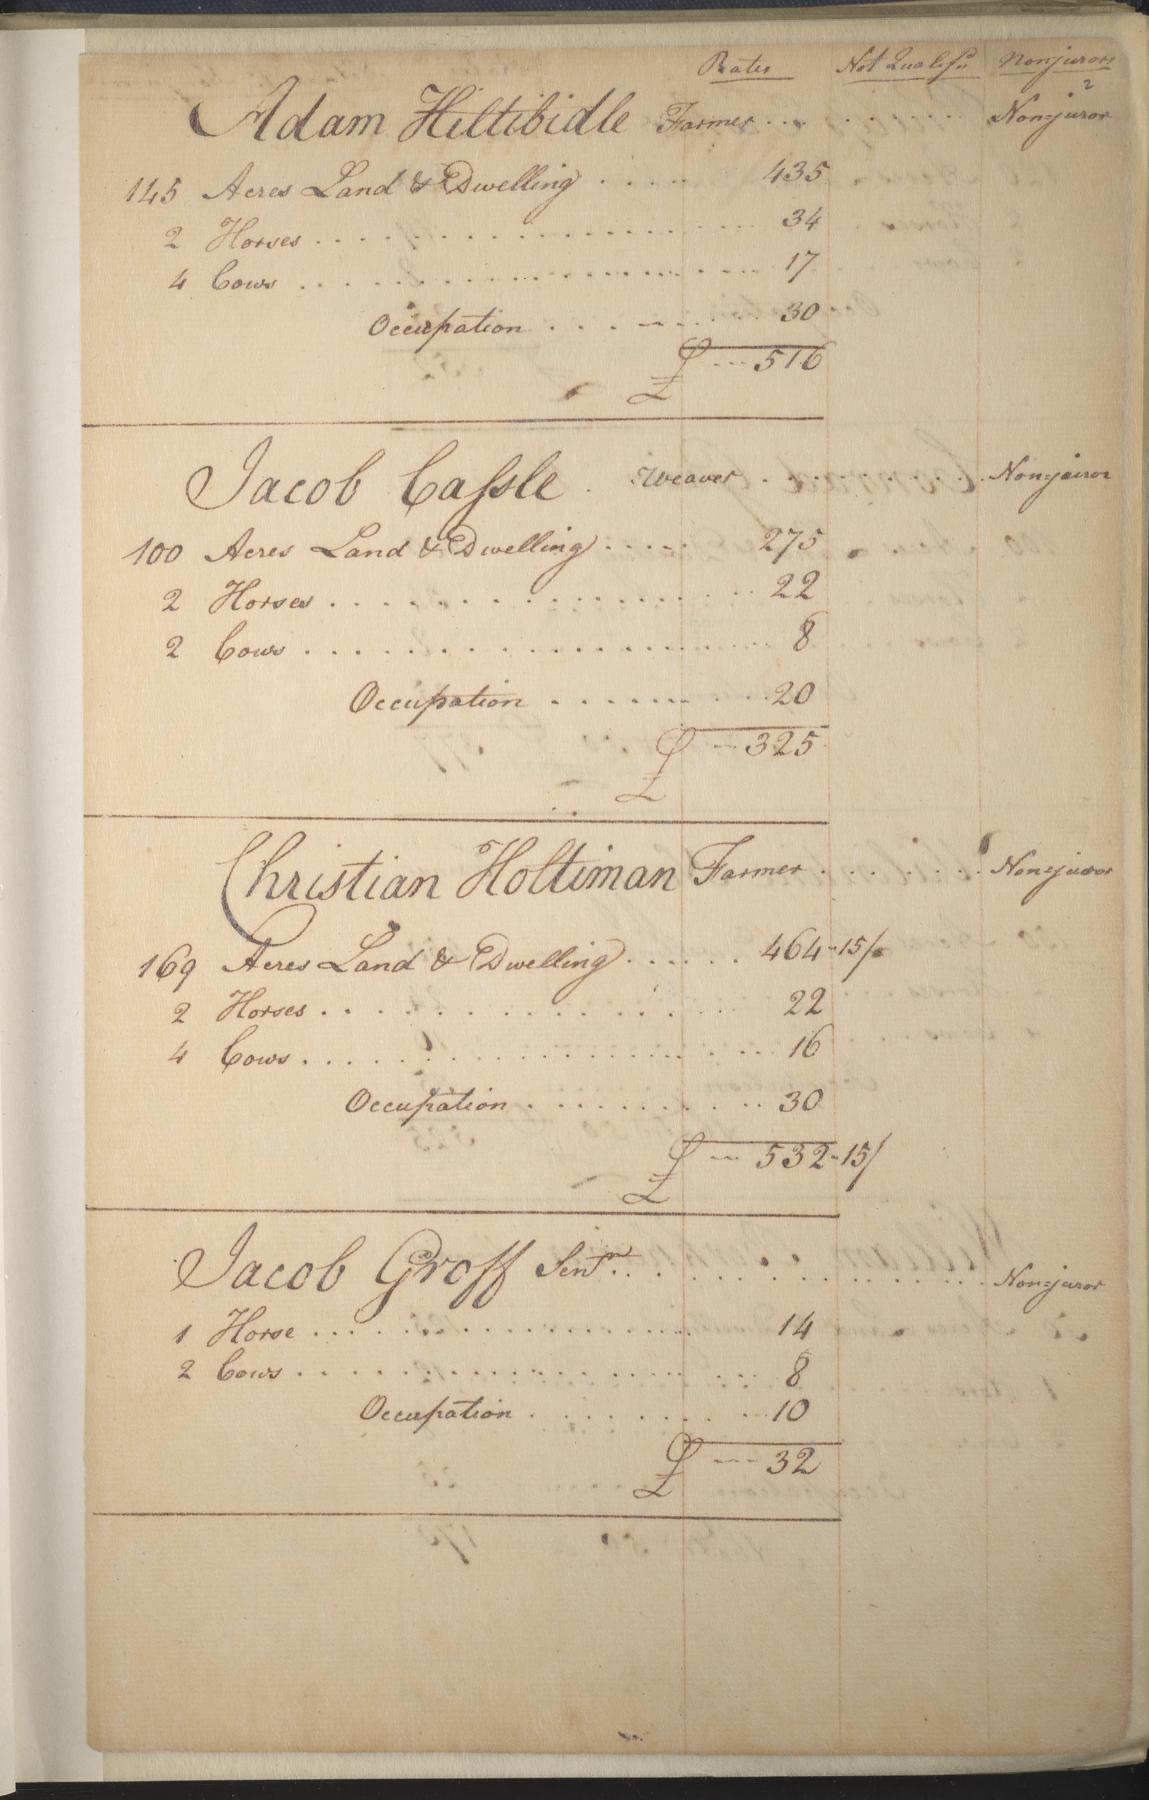 Rates Not Qualifd Nonjurors
2
Adam Hiltibidle Farmer . . . . . . . . Non=juror
145 Acres Land & Dwelling . . . . . 435
2 Horses . . . . . . . . . . 34
4 Cows . . . . . . . . . . 17
Occupation . . . . . . . 30
£ --- 516
Jacob Caſsle . Weaver . . . . . . . . Non=juror
100 Acres Land & Dwelling . . . . . 275
2 Horses . . . . . . . . . . 22
2 Cows . . . . . . . . . . 8
Occupation . . . . . . . 20
£ --- 325
Christian Holtiman Farmer . . . . . . . Non=juror
169 Acres Land & Dwelling . . . . . . 464-15/
2 Horses . . . . . . . . . . 22
4 Cows . . . . . . . . . . 16
Occupation . . . . . . . . 30
£ --- 532-15/
Jacob Groff Senr . . . . . . . . . . . . Non=juror
1 Horse . . . . . . . . . . 14
2 Cows . . . . . . . . . . 8
Occupation . . . . . . . 10
£ --- 32